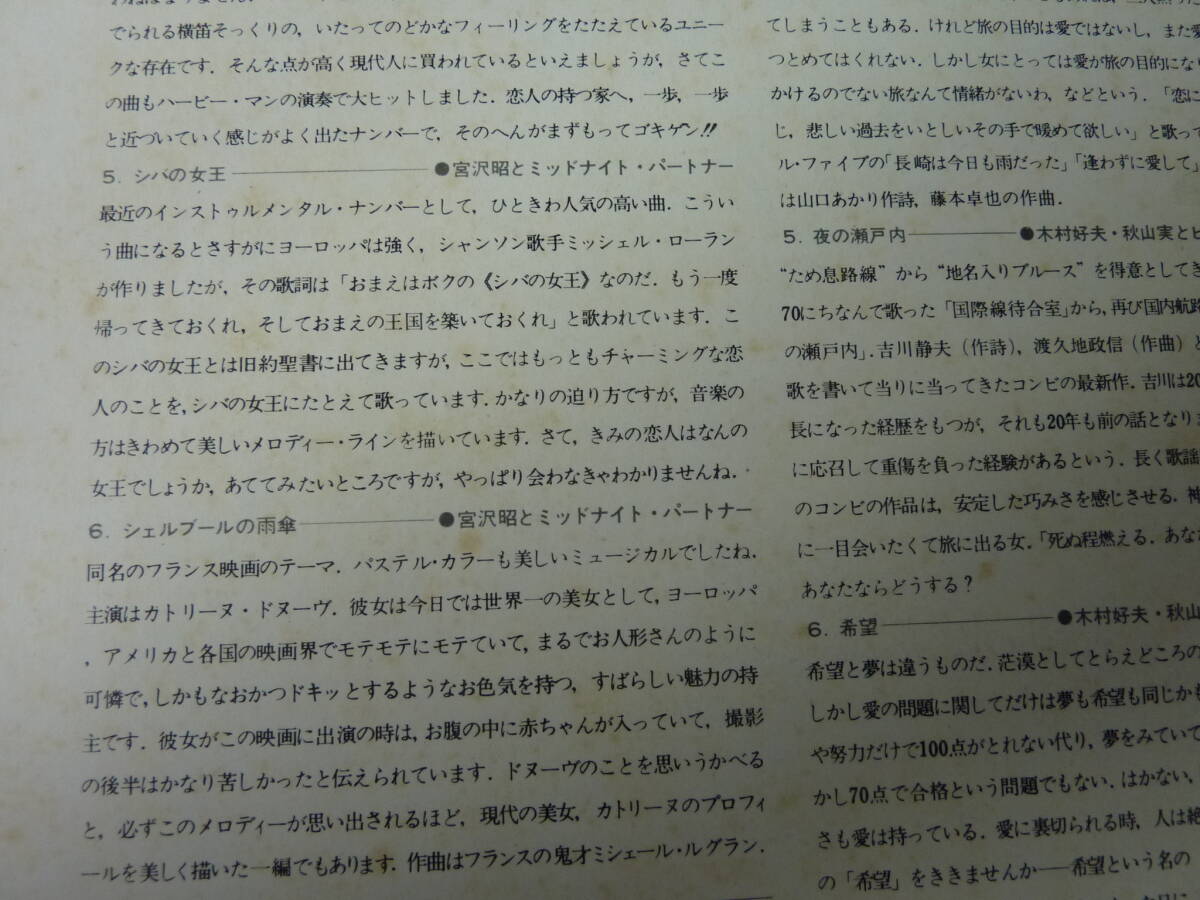 でられる横笛そっくりの，いたってのどかなフィーリングをたたえているユニー
クな存在です．そんな点が高く現代人に買われているといえましょうが，さてこ
の曲もハービー・マンの演奏で大ヒットしました．恋人の持つ家へ，一歩，一歩
と近づいていく感じがよく出たナンバーで，そのへんがまずもってゴキゲン!!
5. シバの女王――●宮沢昭とミッドナイト・パートナー
最近のインストゥルメンタル・ナンバーとして，ひときわ人気の高い曲．こうい
う曲になるとさすがにヨーロッパは強く，シャンソン歌手ミッシェル・ローラン
が作りましたが，その歌詞は「おまえはボクの《シバの女王》なのだ．もう一度
帰ってきておくれ，そしておまえの王国を築いておくれ」と歌われています．こ
のシバの女王とは旧約聖書に出てきますが，ここではもっともチャーミングな恋
人のことを，シバの女王にたとえて歌っています．かなりの迫り方ですが，音楽の
方はきわめて美しいメロディー・ラインを描いています．さて，きみの恋人はなんの
女王でしょうか，あててみたいところですが，やっぱり会わなきゃわかりませんね．
6. シェルブールの雨傘――●宮沢昭とミッドナイト・パートナー
同名のフランス映画のテーマ．パステル・カラーも美しいミュージカルでしたね．
主演はカトリーヌ・ドヌーヴ．彼女は今日では世界一の美女として，ヨーロッパ
，アメリカと各国の映画界でモテモテにモテていて，まるでお人形さんのように
可憐で，しかもなおかつドキッとするようなお色気を持つ，すばらしい魅力の持
主です．彼女がこの映画に出演の時は，お腹の中に赤ちゃんが入っていて，撮影
の後半はかなり苦しかったと伝えられています．ドヌーヴのことを思いうかべる
と，必ずこのメロディーが思い出されるほど，現代の美女，カトリーヌのプロフィ
ールを美しく描いた一編でもあります．作曲はフランスの鬼才ミシェール・ルグラン．
てしまうこともある．けれど旅の目的は愛ではないし，また愛
つとめてはくれない．しかし女にとっては愛が旅の目的になり
かけるのでない旅なんて情緒がないわ，などという．「恋に
じ，悲しい過去をいとしいその手で暖めて欲しい」と歌って
ル・ファイブの「長崎は今日も雨だった」「逢わずに愛して」
は山口あかり作詩，藤本卓也の作曲．
5. 夜の瀬戸内――●木村好夫・秋山実とビ
“ため息路線”から“地名入りブルース”を得意としてき
70にちなんで歌った「国際線待合室」から，再び国内航路
の瀬戸内」．吉川静夫（作詩），渡久地政信（作曲）と
歌を書いて当りに当ってきたコンビの最新作．吉川は20
長になった経歴をもつが，それも20年も前の話となりま
に応召して重傷を負った経験があるという．長く歌謡
のコンビの作品は，安定した巧みさを感じさせる．神
に一目会いたくて旅に出る女．「死ぬ程燃える．あなた
あなたならどうする？
6. 希望――●木村好夫・秋山
希望と夢は違うものだ．茫漠としてとらえどころの
しかし愛の問題に関してだけは夢も希望も同じかも
や努力だけで100点がとれない代り，夢をみていて
かし70点で合格という問題でもない．はかない，
さも愛は持っている．愛に裏切られる時，人は絶
の「希望」をききませんか――希望という名の